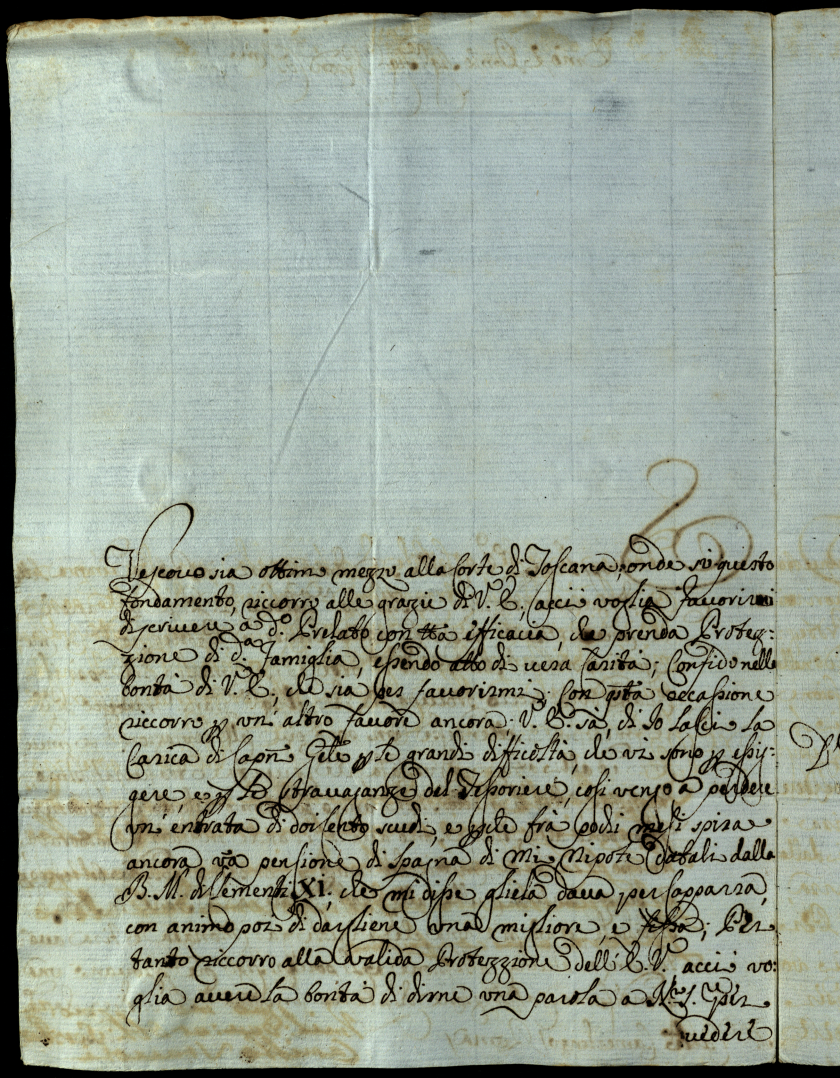 Vescovo sia ottimo mezzo alla Corte di Toscana, onde sù questo
fondamento, riccorro alle grazie di V. E. acciò voglia favorirmi
di scrivere a d.º Prelato con tta efficacia, che prenda Protez-
zione di d.ª Famiglia, essendo atto di vera Carità; Confido nella
bontà di V. E., che sia per favorirmi; Con qsta occassione
riccorro p un' altro favore ancora. V. E. sà, di Io lasci la
Carica di Capn Gele p le grandi difficoltà, che vi sono p essi-
gere, e p le stravaganze del Tesoriere, così vengo a perdere
un' entrata di doicento scudi, e pche frà pochi mesi spira
ancora una pensione di Spagna di Mio Nipote datali dalla
B. M. di Clemente XI, che mi disse gliela dava per Capparra,
con animo poi di darliene una migliore, e fissa; Per
tanto riccorro alla valida Protezzione dell' E. V. acciò vo-
glia avere la bontà di dirne una parola a N.ro S. per
vedere